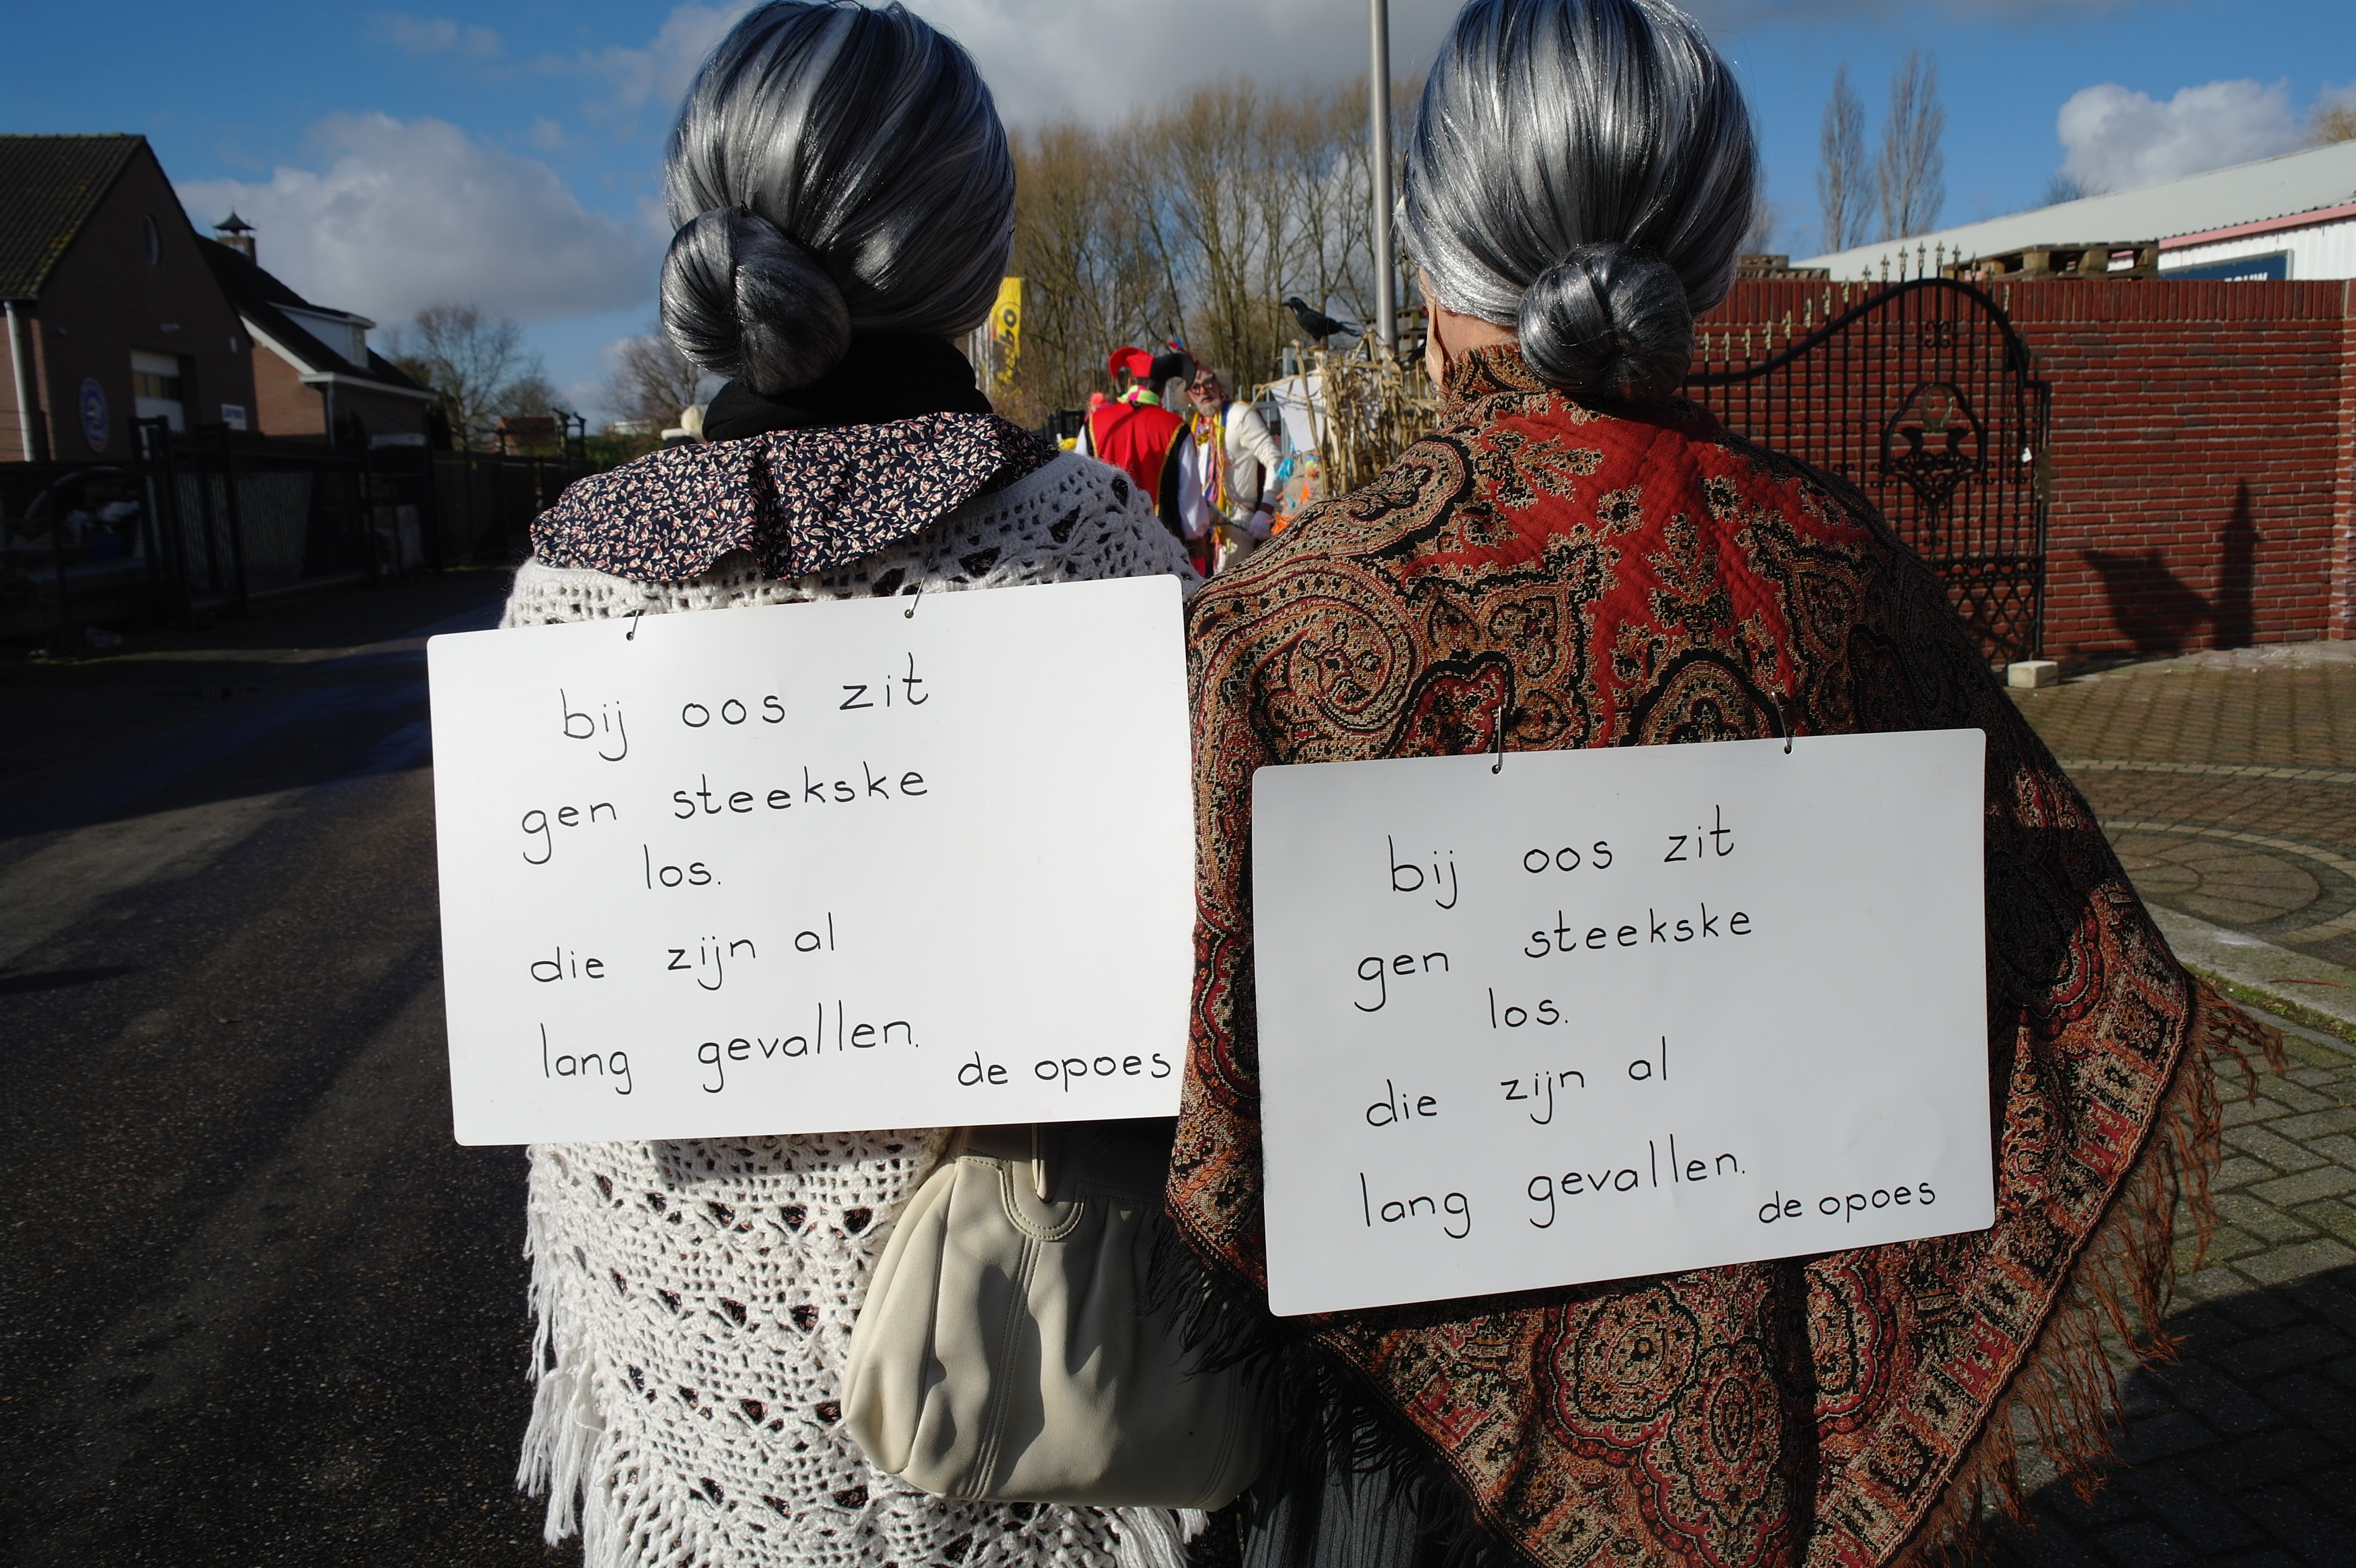 bij oos zit
gen steekske
los.
die zijn al
lang gevallen.
de opoes
bij oos zit
gen steekske
los.
die zijn al
lang gevallen.
de opoes